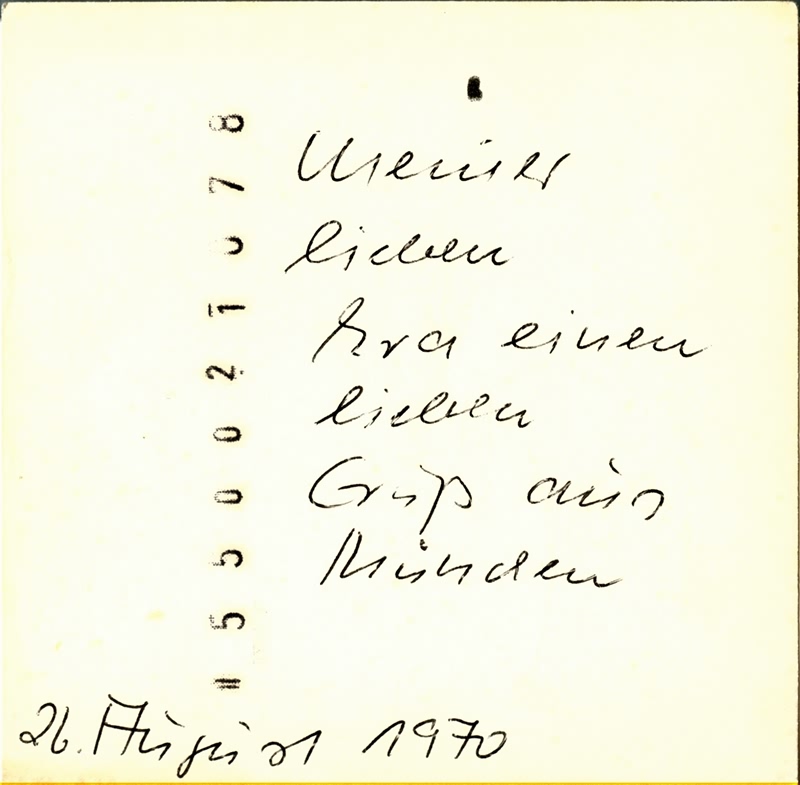 Meiner
lieben
Eva einen
lieben
Gruß aus
München
26. August 1970
= 5 5 0 0 2 1 0 7 8